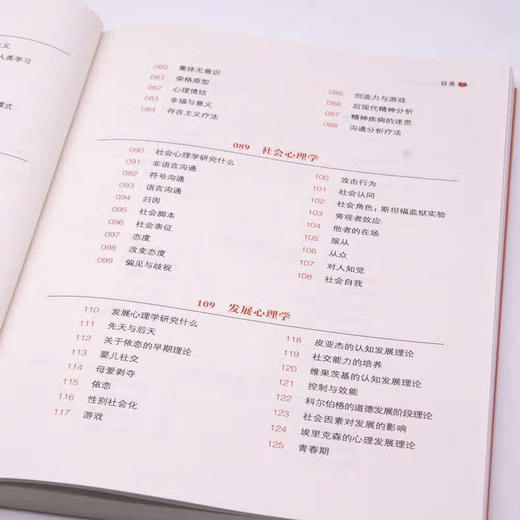 义
人类学习
模式
目录
080 集体无意识
081 荣格原型
082 心理情结
083 幸福与意义
084 存在主义疗法
085 创造力与游戏
086 后现代精神分析
087 精神疾病的迷思
088 沟通分析疗法
089 社会心理学
090 社会心理学研究什么
091 非语言沟通
092 符号沟通
093 语言沟通
094 归因
095 社会脚本
096 社会表征
097 态度
098 改变态度
099 偏见与歧视
100 攻击行为
101 社会认同
102 社会角色：斯坦福监狱实验
103 旁观者效应
104 他者的在场
105 服从
106 从众
107 对人知觉
108 社会自我
109 发展心理学
110 发展心理学研究什么
111 先天与后天
112 关于依恋的早期理论
113 婴儿社交
114 母爱剥夺
115 依恋
116 性别社会化
117 游戏
118 皮亚杰的认知发展理论
119 社交能力的培养
120 维果茨基的认知发展理论
121 控制与效能
122 科尔伯格的道德发展阶段理论
123 社会因素对发展的影响
124 埃里克森的心理发展理论
125 青春期